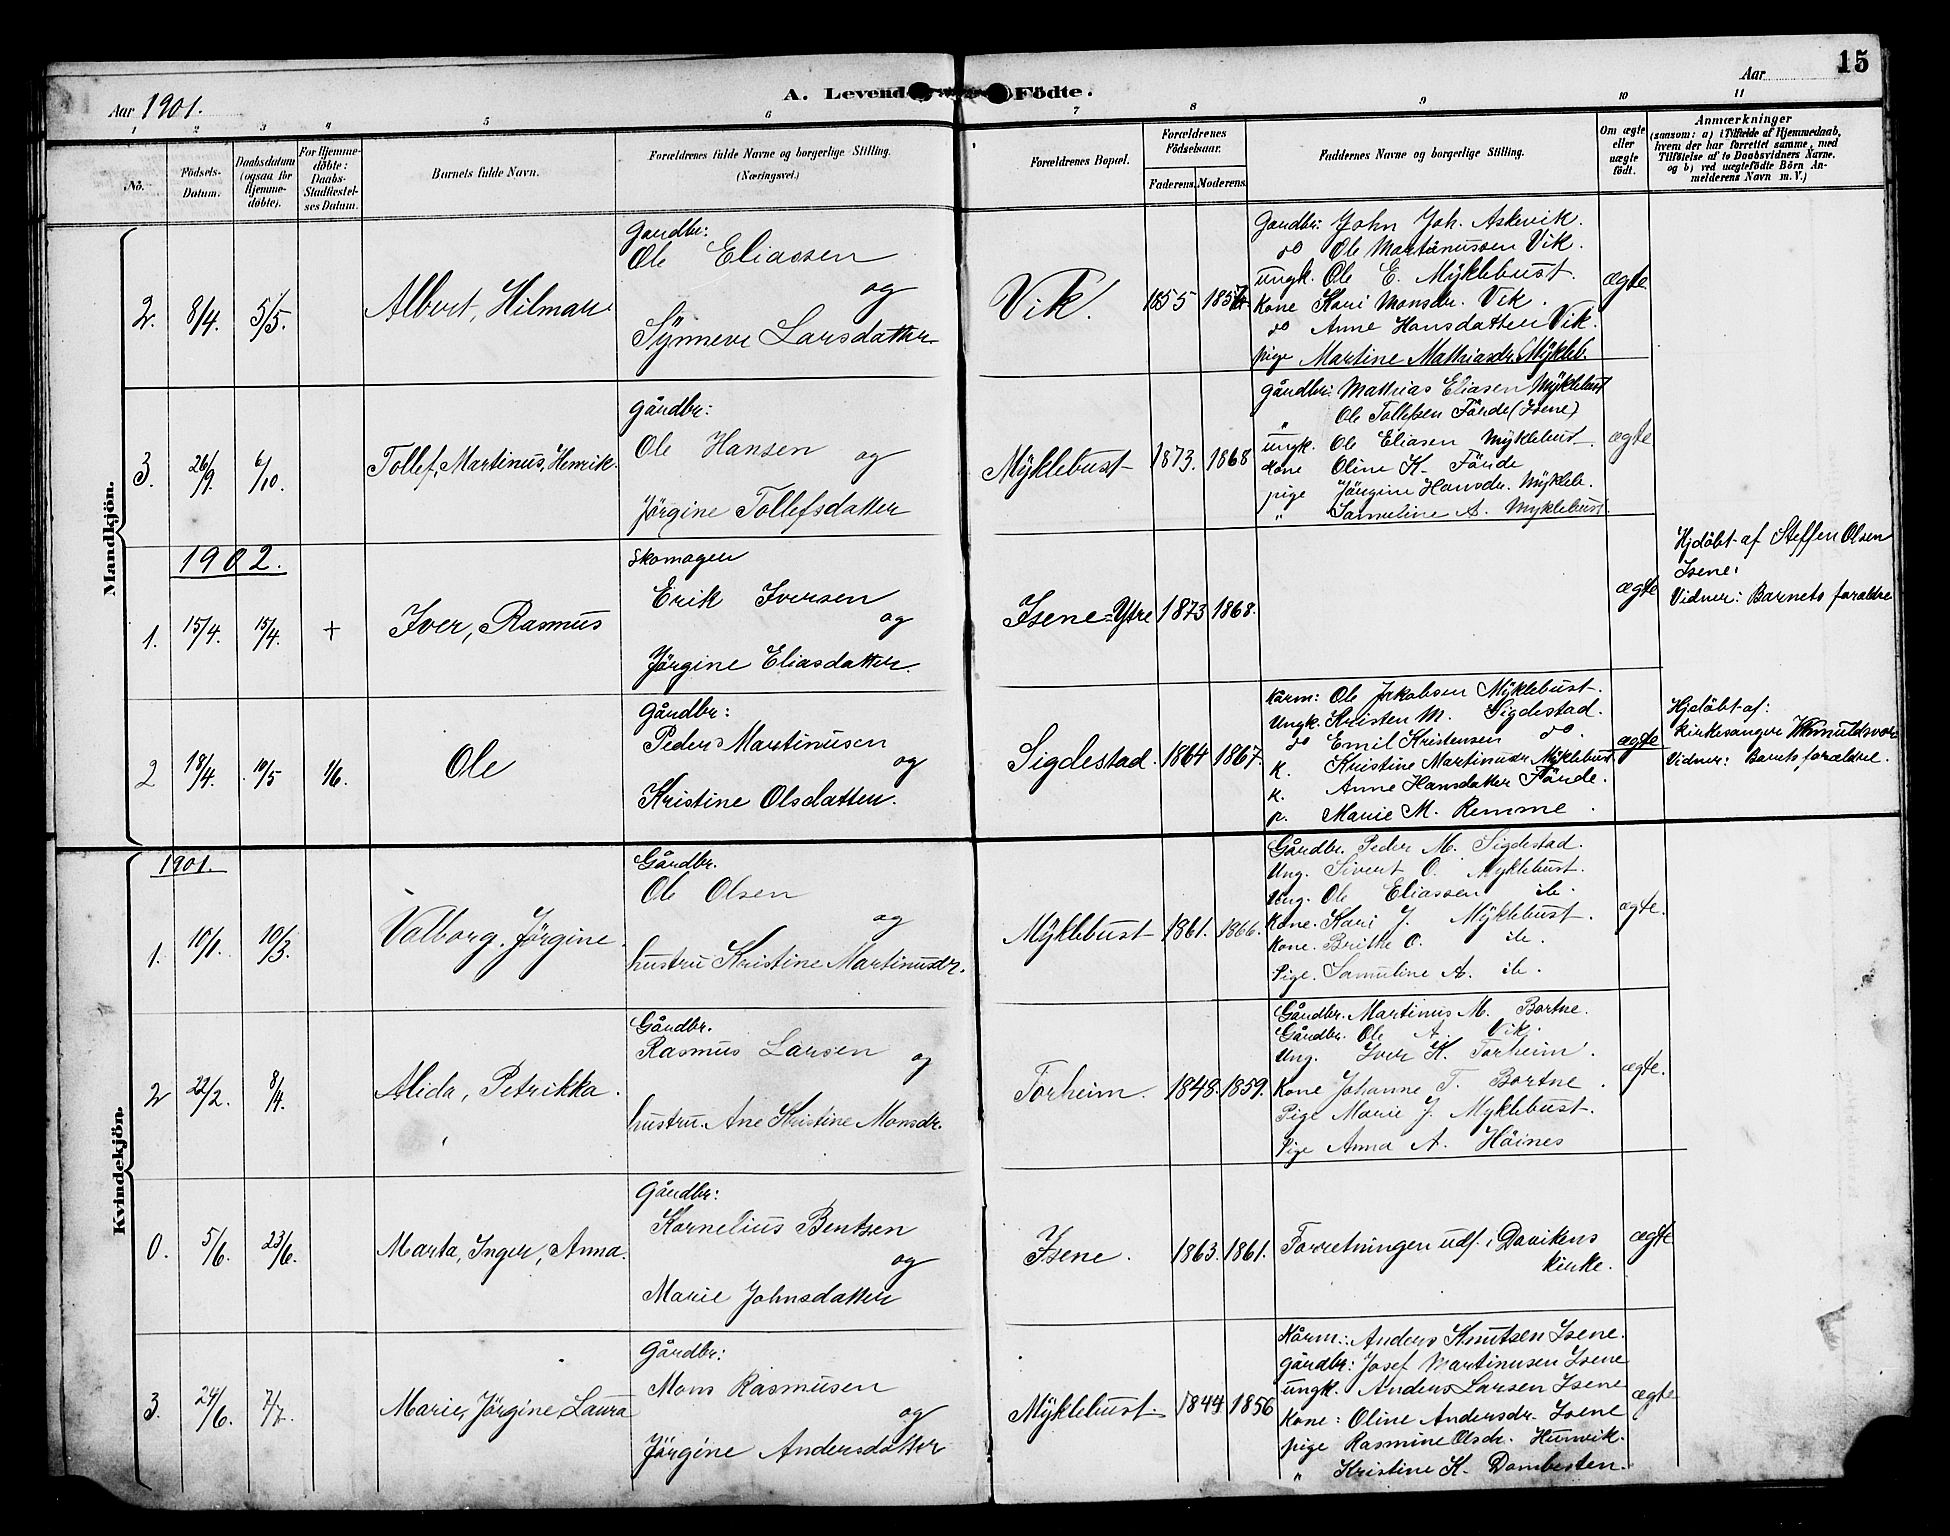 Aar 1901.
A. Levende Födte.
Aar
15
1 2 3 4 5 6 7 8 9 10 11
No.
Födsels-
Datum.
Daabsdatum
(ogsaa for
Hjemme-
döbte).
For Hjemme-
döbte:
Daabs-
Stadfæstel-
ses Datum.
Barnets fulde Navn.
Forældrenes fulde Navne og borgerlige Stilling.
(Næringsvei.)
Forældrenes Bopæl.
Forældrenes
Födselsaar.
Faderens. Moderens.
Faddernes Navne og borgerlige Stilling.
Om ægte
eller
uægte
födt.
Anmærkninger
(saasom: a) i Tilfælde af Hjemmedaab,
hvem der har forrettet samme, med
Tilföielse af to Daabsvidners Navne.
og b) ved uægtefödte Börn An-
melderens Navn m. V.)
Mandkjön.
2. 8/4. 5/5.
Albert, Hilmar
Gaardbr:
Ole Eliassen
og
Synneve Larsdatter.
Vik.
1855 1857
Gaardbr: John Joh. Askevik.
do Ole Martinussen Vik.
ungk. Ole E. Myklebust.
Kone Kari Monsdr. Vik.
do Anne Hansdatter Vik.
pige Martine Mathiasdr. Mykleb.
ægte
3. 26/9. 6/10.
Tollef, Martinus, Henrik.
gårdbr:
Ole Hansen
og
Jörgine Tollefsdatter
Myklebust
1873. 1868
gårdbr: Mathias Eliasen Myklebust
" Ole Tollefsen Förde (Isene)
ungk. Ole Eliasen Myklebust.
kone Oline K. Förde
pige Jörgine Hansdr. Mykleb.
" Samuline A. Myklebust.
ægte
1902.
1. 15/4. 15/4. +
Iver, Rasmus
Skomager
Erik Iversen
og
Jörgine Eliasdatter.
Isene-Ytre
1873 1868.
ægte
Hjdöbt af Steffen Olsen
Isene:
Vidner: Barnets forældre
2 18/4. 10/5 1/6.
Ole
Gårdbr:
Peder Martinusen
og
Kristine Olsdatter.
Sigdestad.
1864 1867.
Kårm: Ole Jakobsen Myklebust.
Ungk. Kristen M. Sigdestad.
do Emil Kristensen do.
K. Kristine Martinusdr Myklebust
K. Anne Hansdatter Förde.
p. Marie M. Remme.
ægte
Hjdöbt af:
kirkesanger
Vidner: Barnets forældre.
Kvindekjön.
1901.
1. 10/1. 10/3.
Valborg, Jörgine.
Gårdbr.
Ole Olsen
og
hustru Kristine Martinusdr.
Myklebust
1861. 1866.
Gårdbr. Peder M. Sigdestad.
Ung. Sivert O. Myklebust.
Ung. Ole Eliassen ib.
Kone. Kari J. Myklebust.
Kone. Brithe O. ib.
Pige. Samuline A. ib.
ægte.
2 22/2. 8/4.
Alida, Petrikka.
Gårdbr.
Rasmus Larsen
og
hustru. Ane Kristine Monsdr.
Torheim.
1848. 1859.
Gårdbr. Martinus M. Bortne.
Gårdbr. Ole A. Vik.
Ung. Iver K. Torheim.
Kone Johanne T. Bortne.
Pige Marie J. Myklebust.
Pige Anna A. Höines
ægte.
0. 5/6. 23/6.
Marta, Inger, Anna.
Gårdbr:
Kornelius Bentsen
og
Marie Johnsdatter
Isene.
1863. 1861.
Forretningen udf. i Davikens
kirke.
ægte
3. 24/6. 7/7.
Marie, Jörgine, Laura
Gårdbr:
Mons Rasmusen
og
Jörgine Andersdatter
Myklebust.
1844 1856
Kårm: Anders Knutsen Isene.
gårdbr: Josef Martinusen Isene
ungk. Anders Larsen Isene
Kone: Oline Andersdr. Isene
pige Rasmine Olsdr. Hunvik.
" Kristine K. Dombesten.
ægte